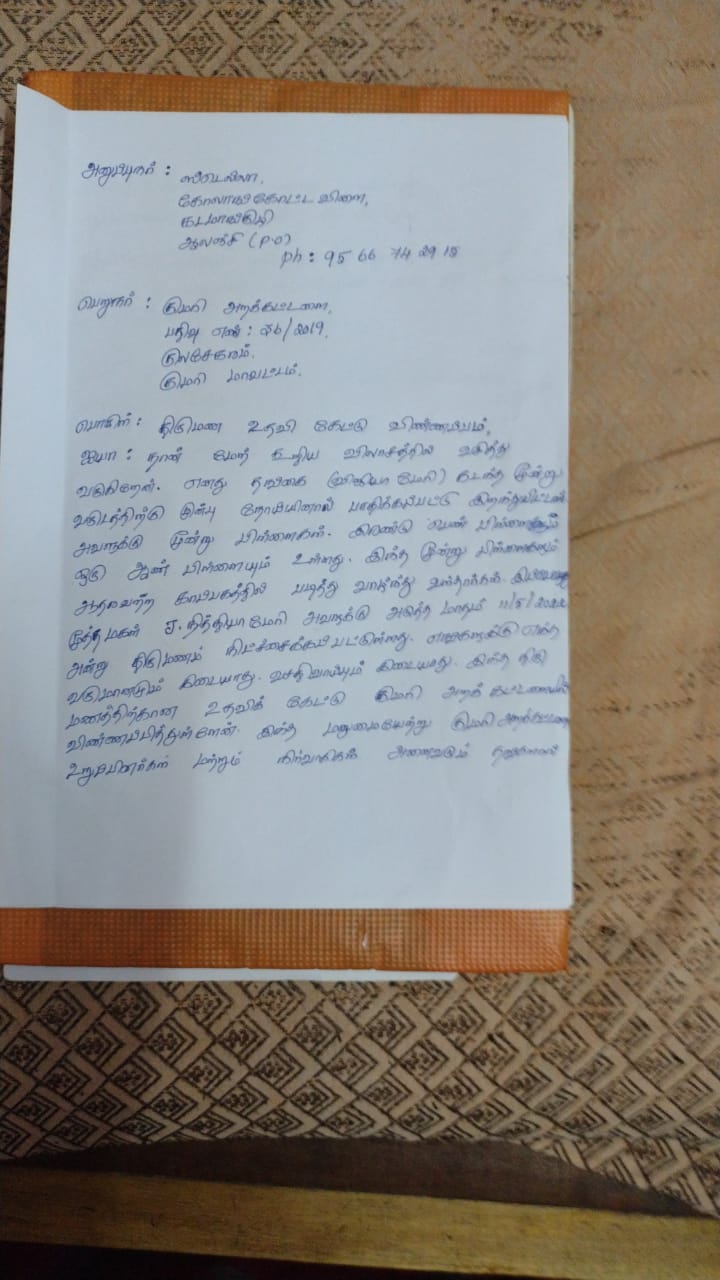 அனுப்புநர் :
ஸ்டெல்லா,
கோலாங்கோட்ட விளை,
கடமாங்குழி
ஆலஞ்சி (P.O)
ph : 95 66 74 29 15
பெறுநர் : குமரி அறக்கட்டளை,
பதிவு எண் : 36/2019,
குலசேகரம்.
குமரி மாவட்டம்.
பொருள் : திருமண உதவி கேட்டு விண்ணப்பம்.
ஐயா : நான் மேற் கூறிய விலாசத்தில் வசித்து
வருகிறேன். எனது தங்கை மேரி) கடந்த மூன்று
வருடத்திற்கு முன்பு நோயினால் பாதிக்கப்பட்டு இறந்துவிட்டாள்
அவளுக்கு மூன்று பிள்ளைகள். இரண்டு பெண் பிள்ளைகளும்
ஒரு ஆண் பிள்ளையும் உள்ளது. இந்த மூன்று பிள்ளைகளும்
ஆதரவற்ற காப்பகத்தில் படித்து வாழ்ந்து வந்தார்கள்.
மூத்த மகள் J. நித்தியா மேரி அவளுக்கு அடுத்த மாதம் 11/5/2022
அன்று திருமணம் நிட்ச்சைக்கப்பட்டுள்ளது. எங்களுக்கு எந்த
வருமானமும் கிடையாது. வசதிவாய்ப்பும் கிடையாது. இந்த திரு
மணத்திற்கான உதவிக் கேட்டு குமரி அறக் கட்டளையில்
விண்ணப்பித்துள்ளேன். இந்த மனுமையேற்று குமரி அறக்கட்டளை
உறுப்பினர்கள் மற்றும் நிர்வாகிகள் அனைவரும் தங்களால்